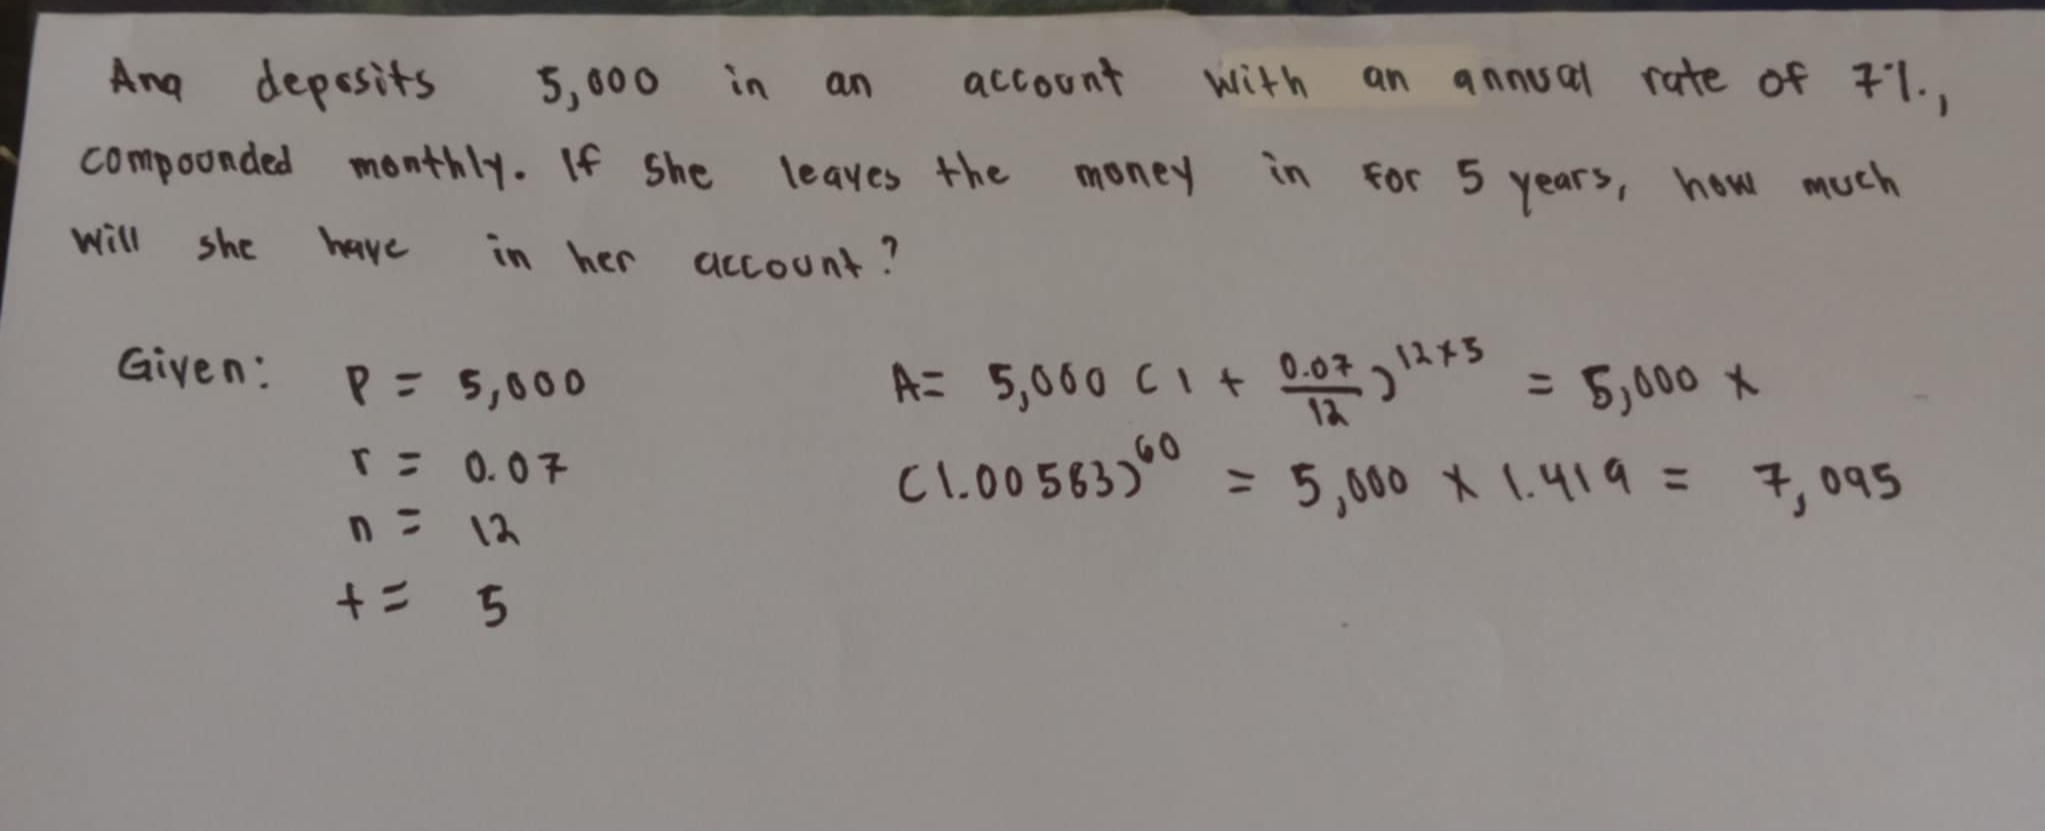 Ana deposits 5,000 in an account with an annual rate of 7%,
compounded monthly. If she leaves the money in for 5 years, how much
will she have in her account?
Given: P = 5,000
r = 0.07
n = 12
t = 5
A = 5,000 (1 + 0.07/12)^12×5 = 5,000 ×
(1.00583)^60 = 5,000 × 1.419 = 7,095